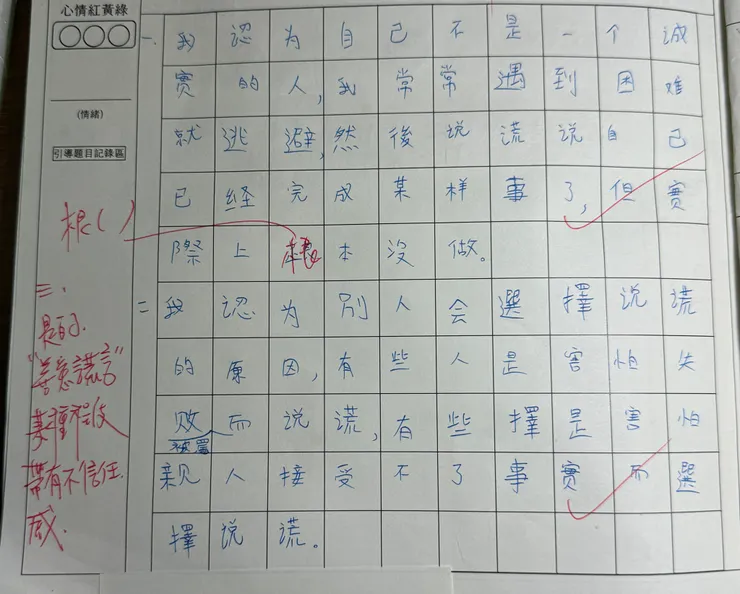 心情紅黃綠
(情緒)
引導題目記錄區
根( )
三、
是的.
"善意謊言"
某種程度
帶有不信任
感.
一、我認为自己不是一个誠
实的人,我常常遇到困难
就逃避,然後说谎说自己
已経完成某样事了,但实
際上根本沒做。
二我認为別人会選擇说谎
的原因,有些人是害怕失
败而说谎,有些擇是害怕
被罵
親人接受不了事实而選
擇说谎。